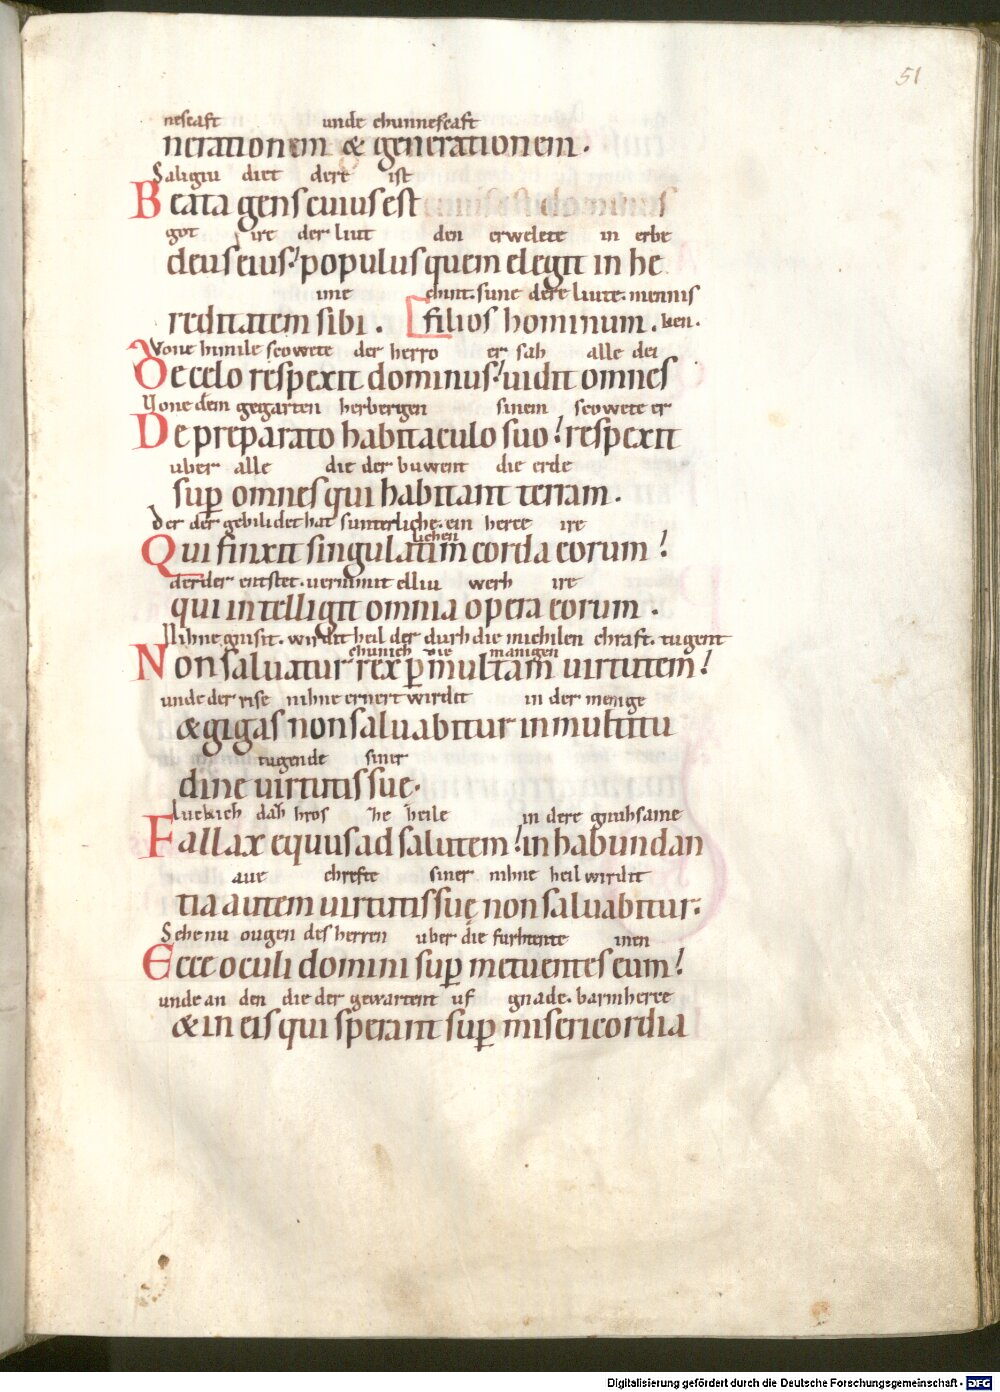 51
nescaft unde chunnescaft
nerationem & generationem.
Saligiu diet dere ist
Beata gens cuius est
got ire der liut den erwelete in erbe
deus eius: populus quem elegit in he
ime chint. sune dere liute. mennis
reditatem sibi. filios hominum. ken.
Vone himile scowete der herro er sah alle dei
De celo respexit dominus: uidit omnes
Uone dem gegarten herbergen sinem scowete er
De preparato habitaculo suo: respexit
uber alle die der buwent die erde
sup omnes qui habitant terram.
Der der gebilidet hat sunterliche. ein herce ire
lichen
Qui finxit singulatim corda eorum:
derder entstet. uernimit elliu werh ire
qui intelligit omnia opera eorum.
Nihne gnisit. wirdit heil der durh die michilen chraft. tugent
chunich vie manigen
Non saluatur rex p multam uirtutem:
unde der rise nihne ernert wirdit in der menige
& gigas non saluabitur in multitu
tugende siner
dine uirtutis sue.
Luckich daz hros he heile in dere gnuhsame
Fallax equus ad salutem: in habundan
aue chrefte siner nihne heil wirdit
tia autem uirtutis suę non saluabitur.
Sehenu ougen des herren uber die furhtente inen
Ecce oculi domini sup metuentes eum:
unde an den die der gewartent uf gnade. barmherce
& in eis qui sperant sup misericordia
Digitalisierung gefördert durch die Deutsche Forschungsgemeinschaft - DFG